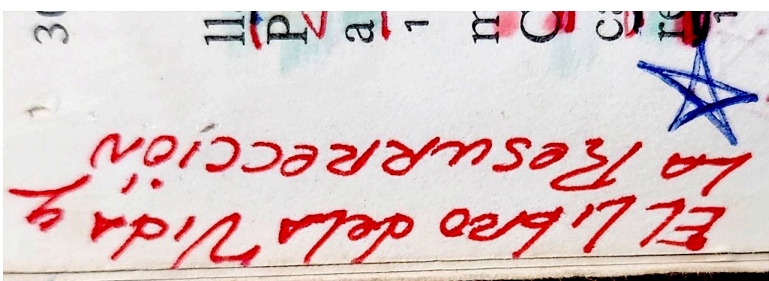 El Libro dela Vida y
La ResuRRección